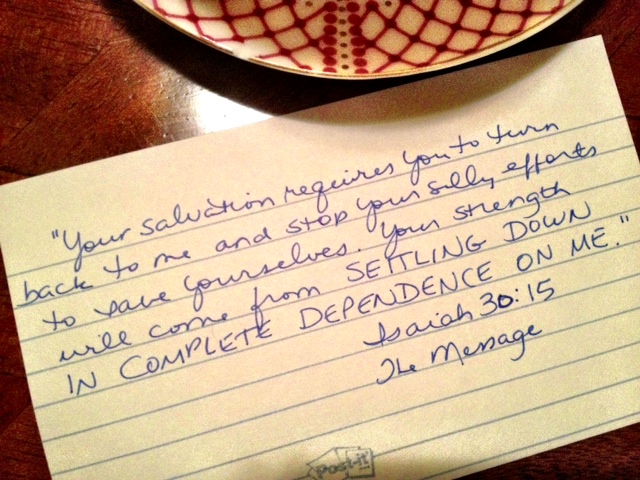 "Your salvation requires you to turn
back to me and stop your silly efforts
to save yourselves. Your strength
will come from SETTLING DOWN
IN COMPLETE DEPENDENCE ON ME."
Isaiah 30:15
The Message
Post-it